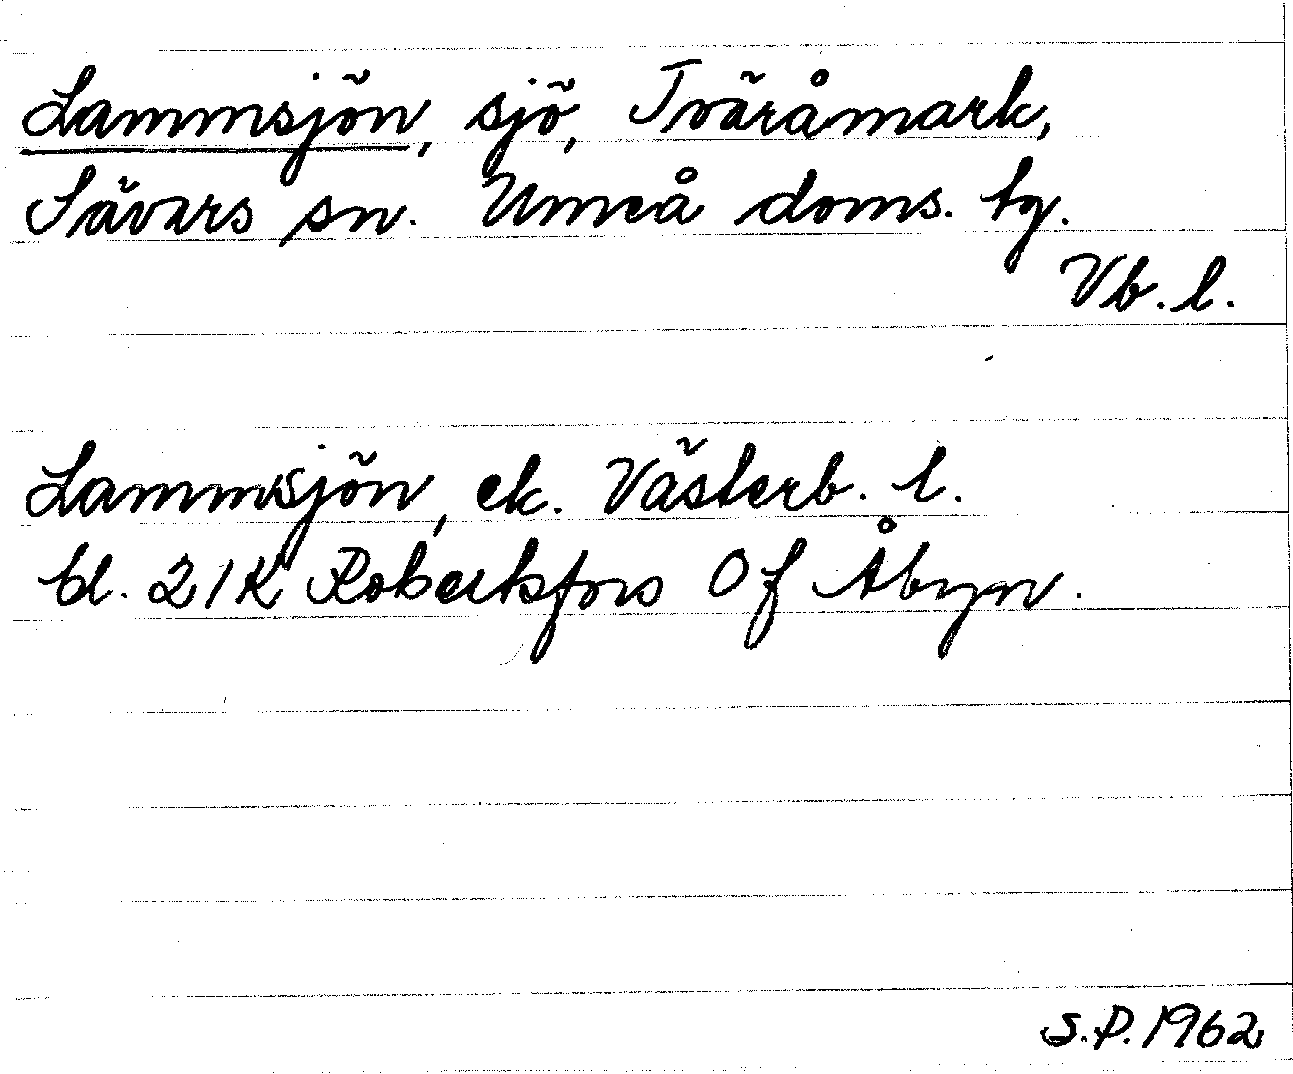 Lammsjön, sjö, Tväråmark,
Sävars sn. Umeå doms. tg.
Vb. l.
Lammsjön, ek. Västerb. l.
bl. 21K Robertsfors Of Åbyn.
S.P. 1962